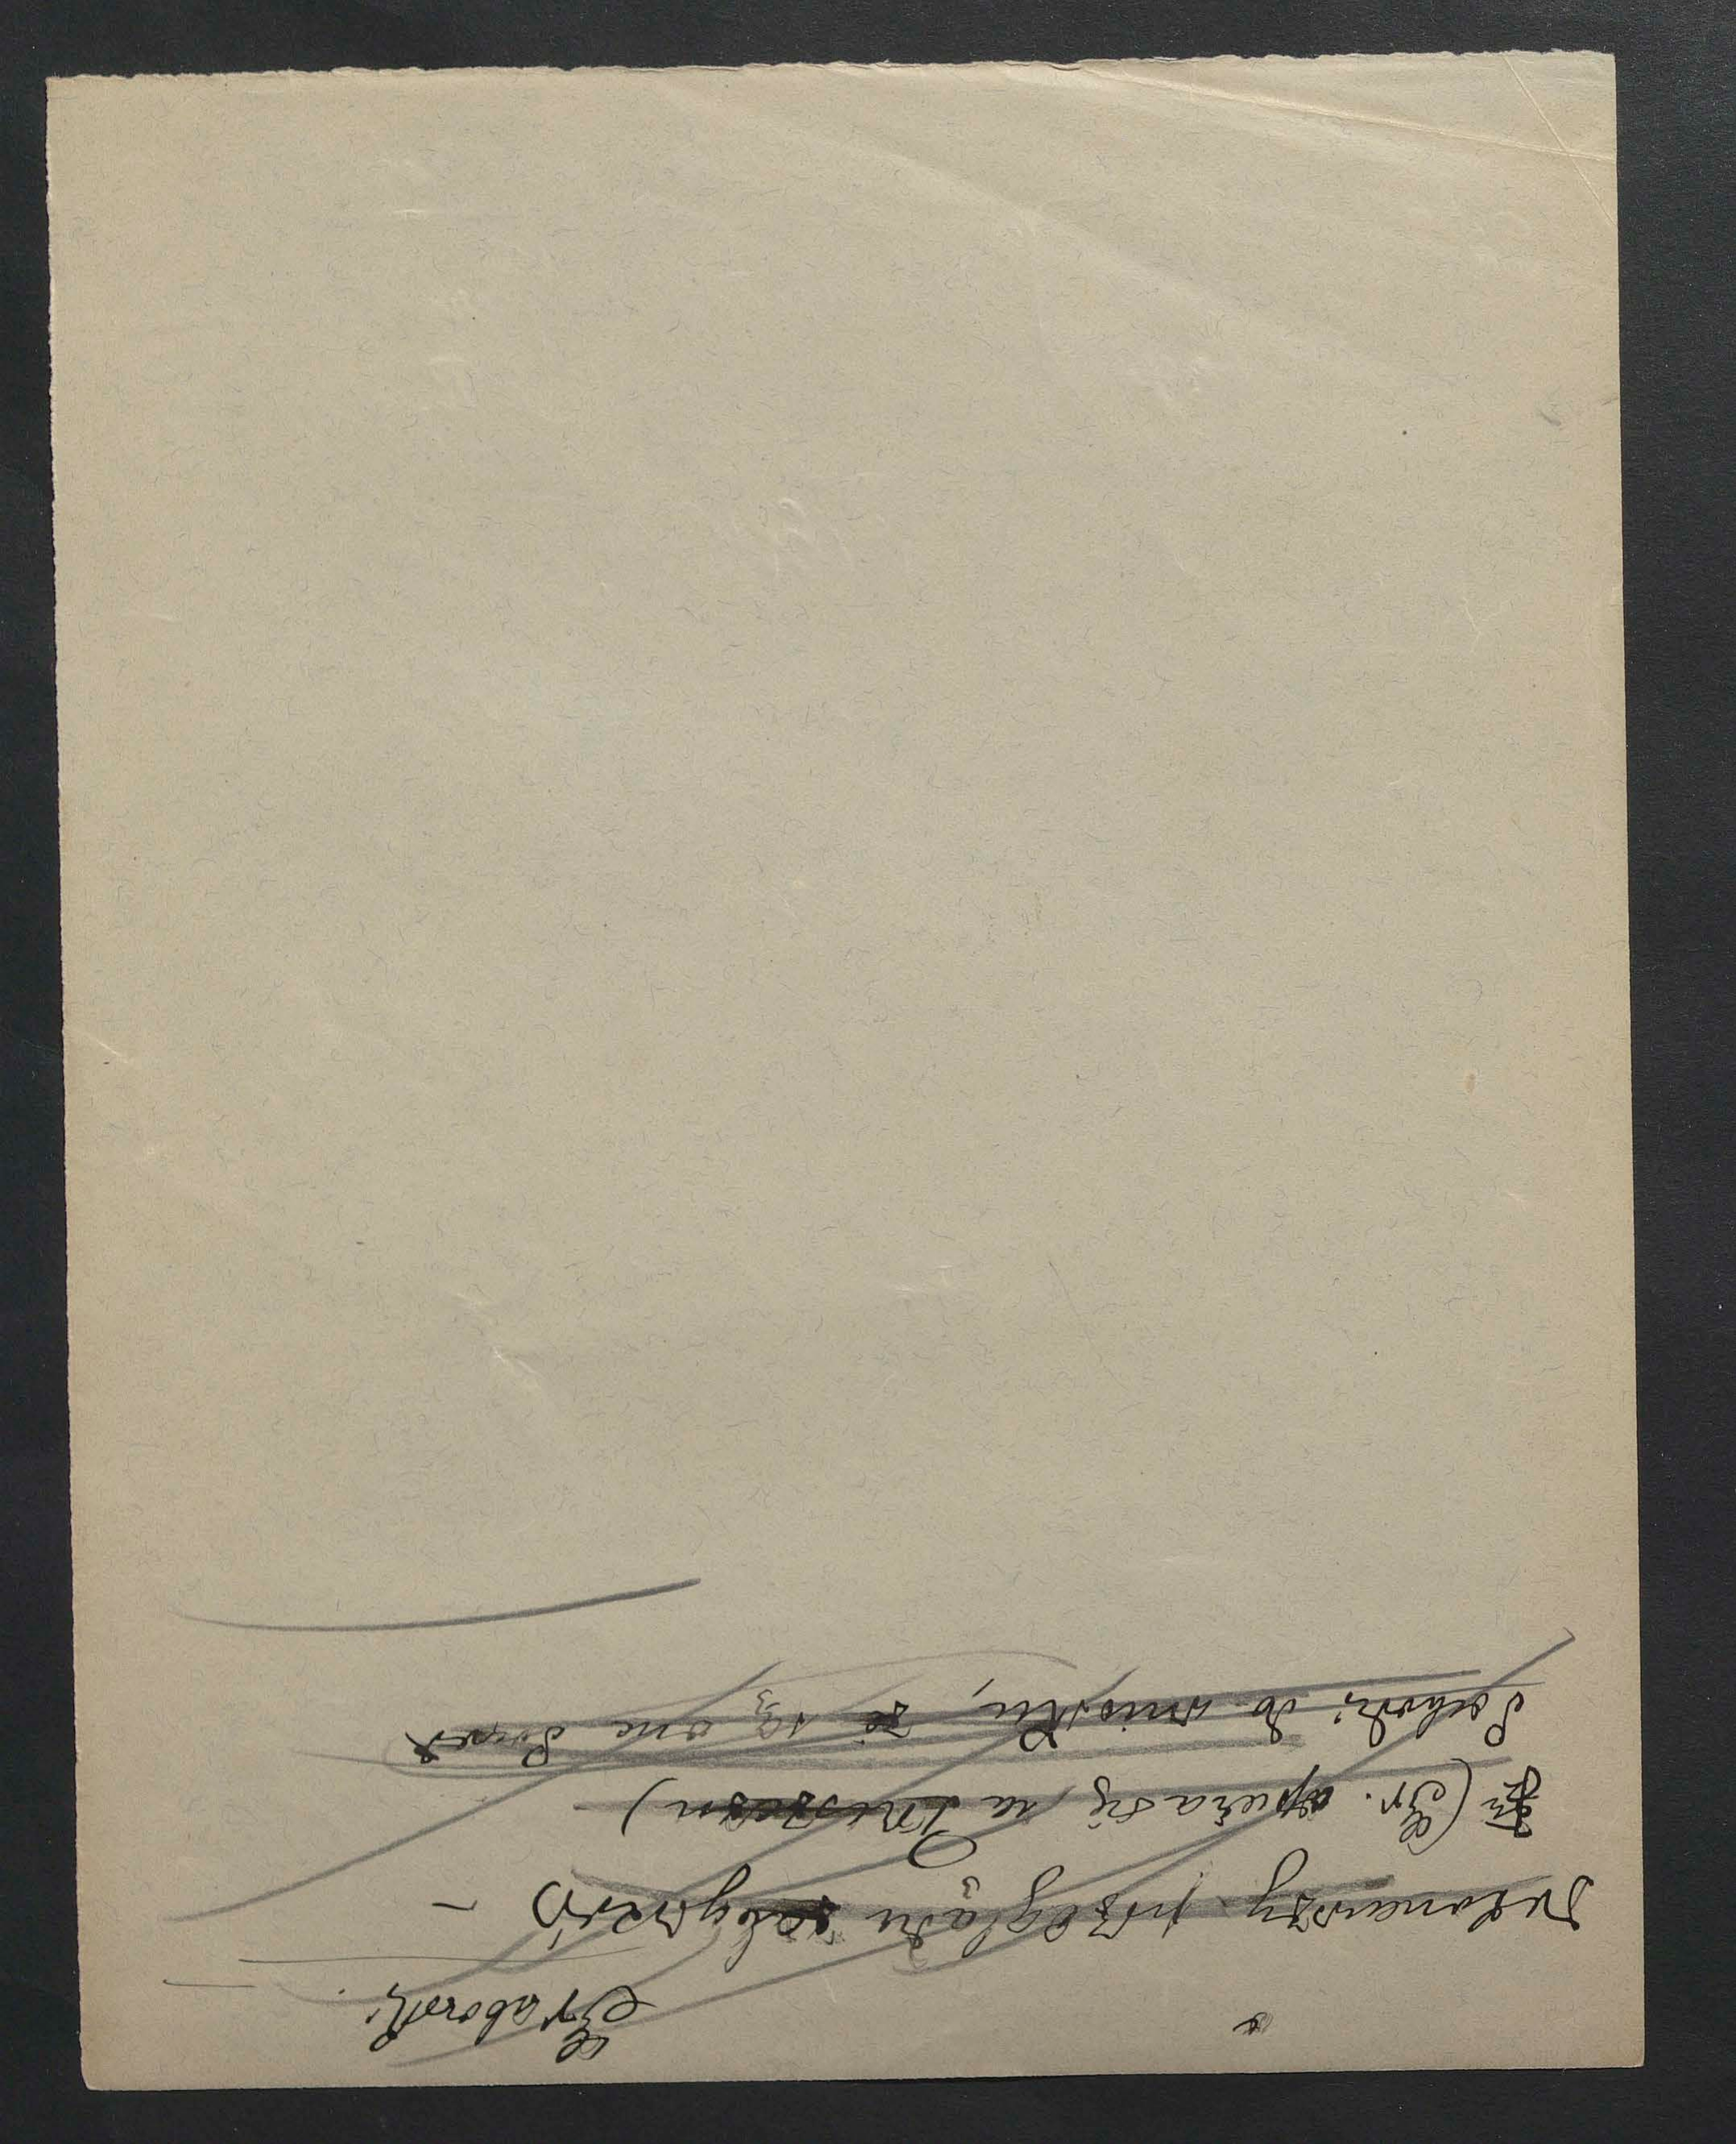 Grabowski.
Dokonawszy przeglądu zabytków –
(Gr. opiera się na
dochodzi do wniosku, że są one